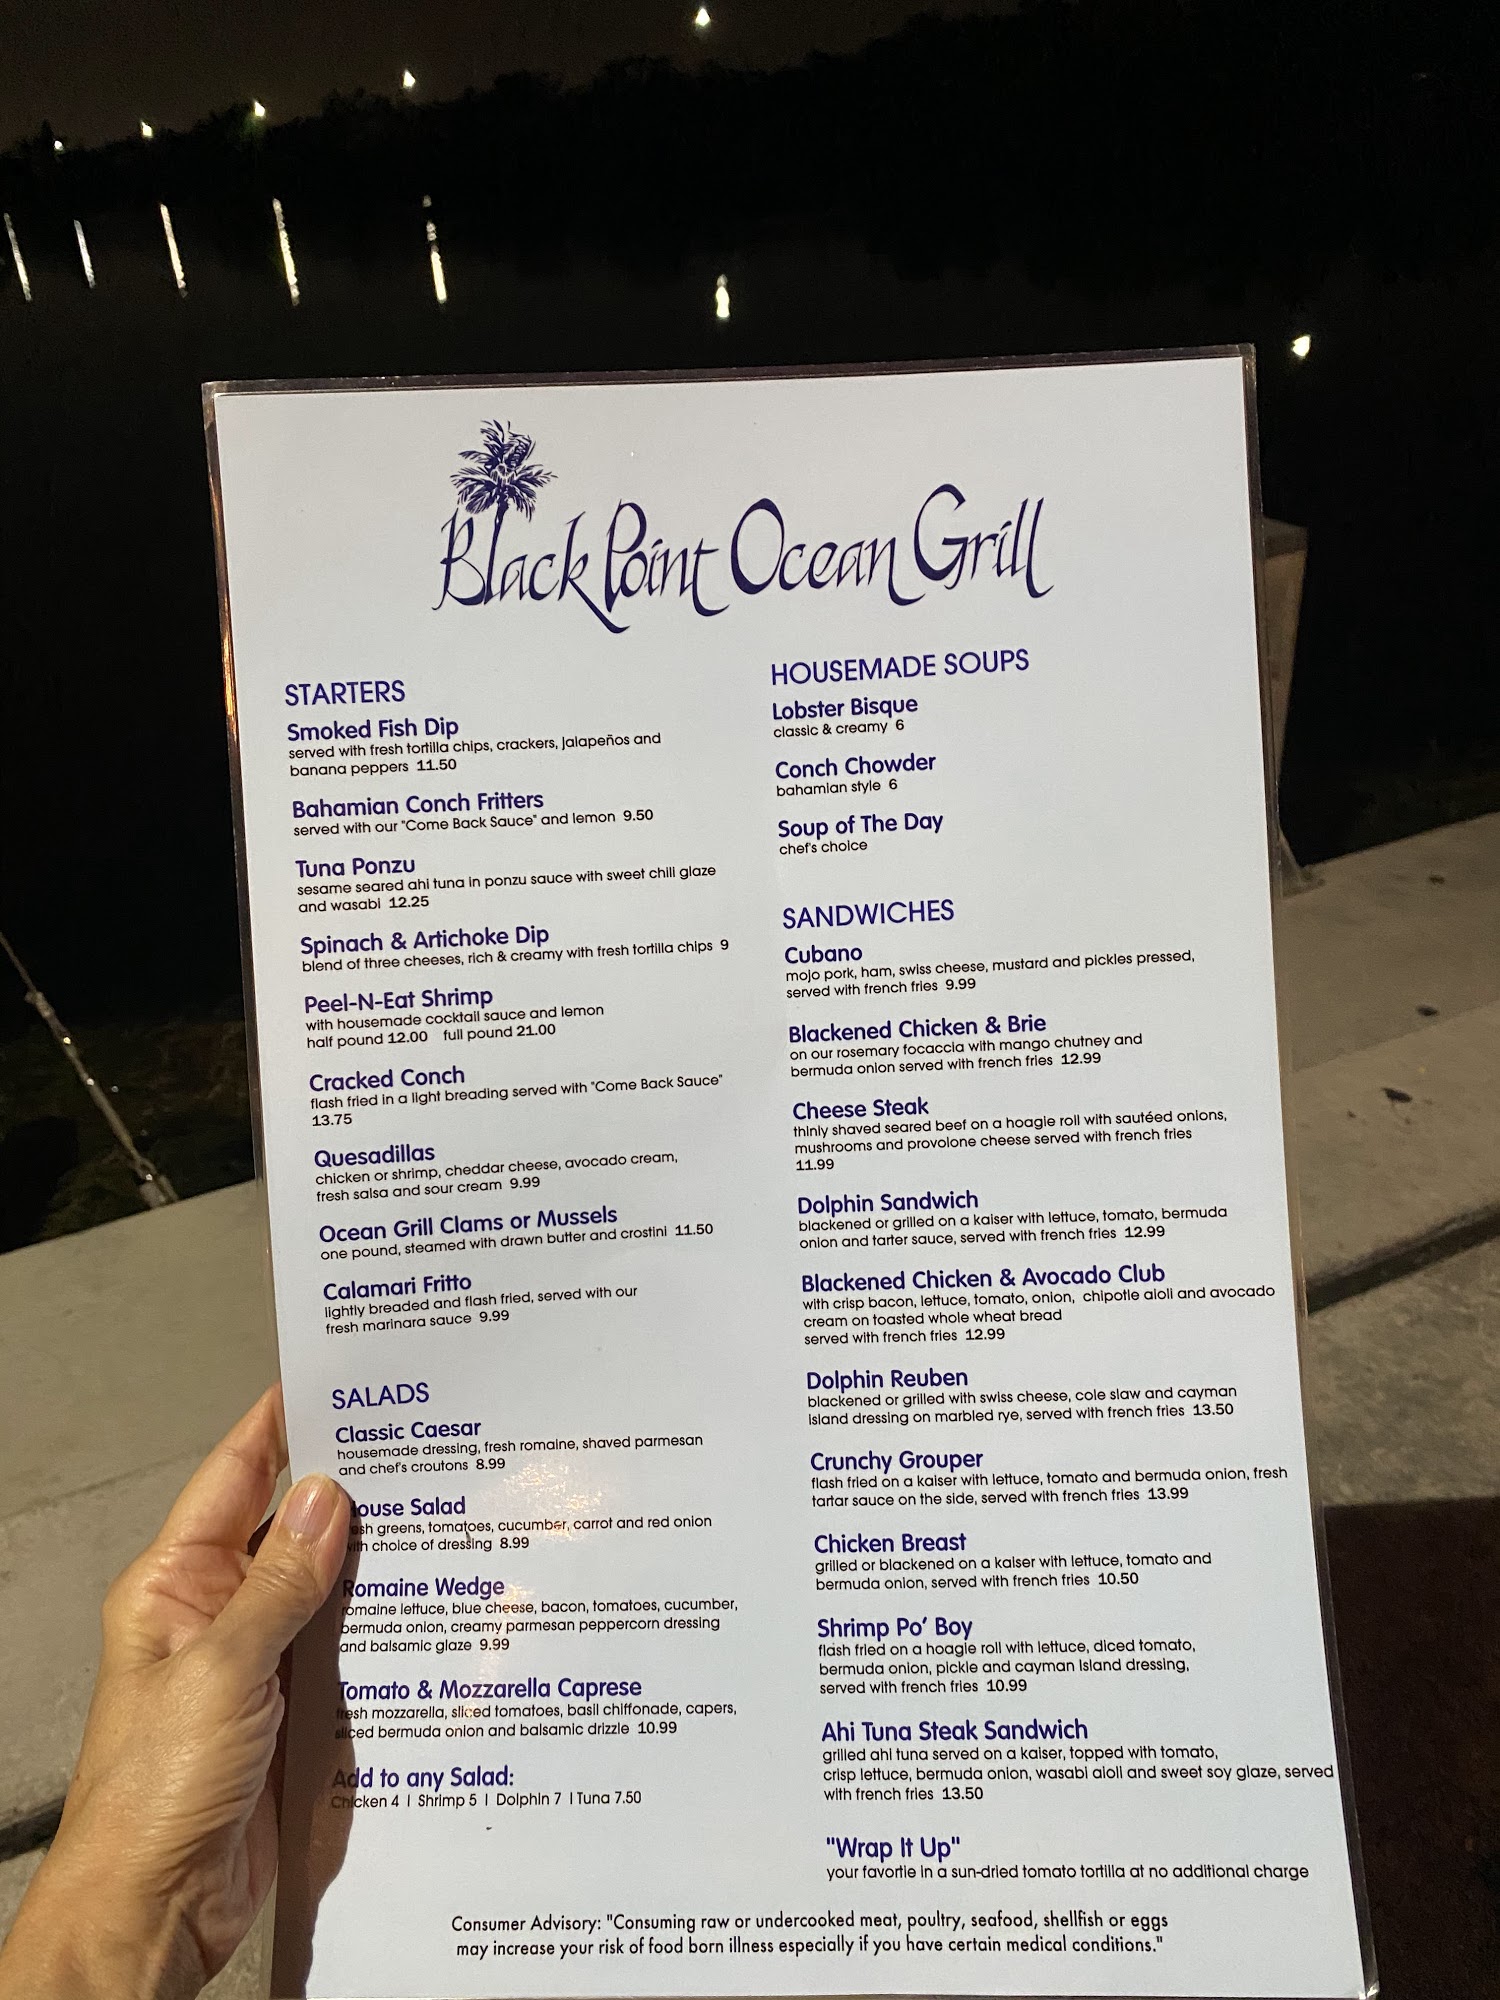 Black Point Ocean Grill
STARTERS
Smoked Fish Dip
served with fresh tortilla chips, crackers, jalapeños and
banana peppers 11.50
Bahamian Conch Fritters
served with our "Come Back Sauce" and lemon 9.50
Tuna Ponzu
sesame seared ahi tuna in ponzu sauce with sweet chili glaze
and wasabi 12.25
Spinach & Artichoke Dip
blend of three cheeses, rich & creamy with fresh tortilla chips 9
Peel-N-Eat Shrimp
with housemade cocktail sauce and lemon
half pound 12.00 full pound 21.00
Cracked Conch
flash fried in a light breading served with "Come Back Sauce"
13.75
Quesadillas
chicken or shrimp, cheddar cheese, avocado cream,
fresh salsa and sour cream 9.99
Ocean Grill Clams or Mussels
one pound, steamed with drawn butter and crostini 11.50
Calamari Fritto
lightly breaded and flash fried, served with our
fresh marinara sauce 9.99
SALADS
Classic Caesar
housemade dressing, fresh romaine, shaved parmesan
and chef's croutons 8.99
House Salad
fresh greens, tomatoes, cucumber, carrot and red onion
with choice of dressing 8.99
Romaine Wedge
romaine lettuce, blue cheese, bacon, tomatoes, cucumber,
bermuda onion, creamy parmesan peppercorn dressing
and balsamic glaze 9.99
Tomato & Mozzarella Caprese
fresh mozzarella, sliced tomatoes, basil chiffonade, capers,
sliced bermuda onion and balsamic drizzle 10.99
Add to any Salad:
Chicken 4 | Shrimp 5 | Dolphin 7 | Tuna 7.50
HOUSEMADE SOUPS
Lobster Bisque
classic & creamy 6
Conch Chowder
bahamian style 6
Soup of The Day
chef's choice
SANDWICHES
Cubano
mojo pork, ham, swiss cheese, mustard and pickles pressed,
served with french fries 9.99
Blackened Chicken & Brie
on our rosemary focaccia with mango chutney and
bermuda onion served with french fries 12.99
Cheese Steak
thinly shaved seared beef on a hoagie roll with sautéed onions,
mushrooms and provolone cheese served with french fries
11.99
Dolphin Sandwich
blackened or grilled on a kaiser with lettuce, tomato, bermuda
onion and tarter sauce, served with french fries 12.99
Blackened Chicken & Avocado Club
with crisp bacon, lettuce, tomato, onion, chipotle aioli and avocado
cream on toasted whole wheat bread
served with french fries 12.99
Dolphin Reuben
blackened or grilled with swiss cheese, cole slaw and cayman
island dressing on marbled rye, served with french fries 13.50
Crunchy Grouper
flash fried on a kaiser with lettuce, tomato and bermuda onion, fresh
tartar sauce on the side, served with french fries 13.99
Chicken Breast
grilled or blackened on a kaiser with lettuce, tomato and
bermuda onion, served with french fries 10.50
Shrimp Po' Boy
flash fried on a hoagie roll with lettuce, diced tomato,
bermuda onion, pickle and cayman island dressing,
served with french fries 10.99
Ahi Tuna Steak Sandwich
grilled ahi tuna served on a kaiser, topped with tomato,
crisp lettuce, bermuda onion, wasabi aioli and sweet soy glaze, served
with french fries 13.50
"Wrap It Up"
your favortie in a sun-dried tomato tortilla at no additional charge
Consumer Advisory: "Consuming raw or undercooked meat, poultry, seafood, shellfish or eggs
may increase your risk of food born illness especially if you have certain medical conditions."